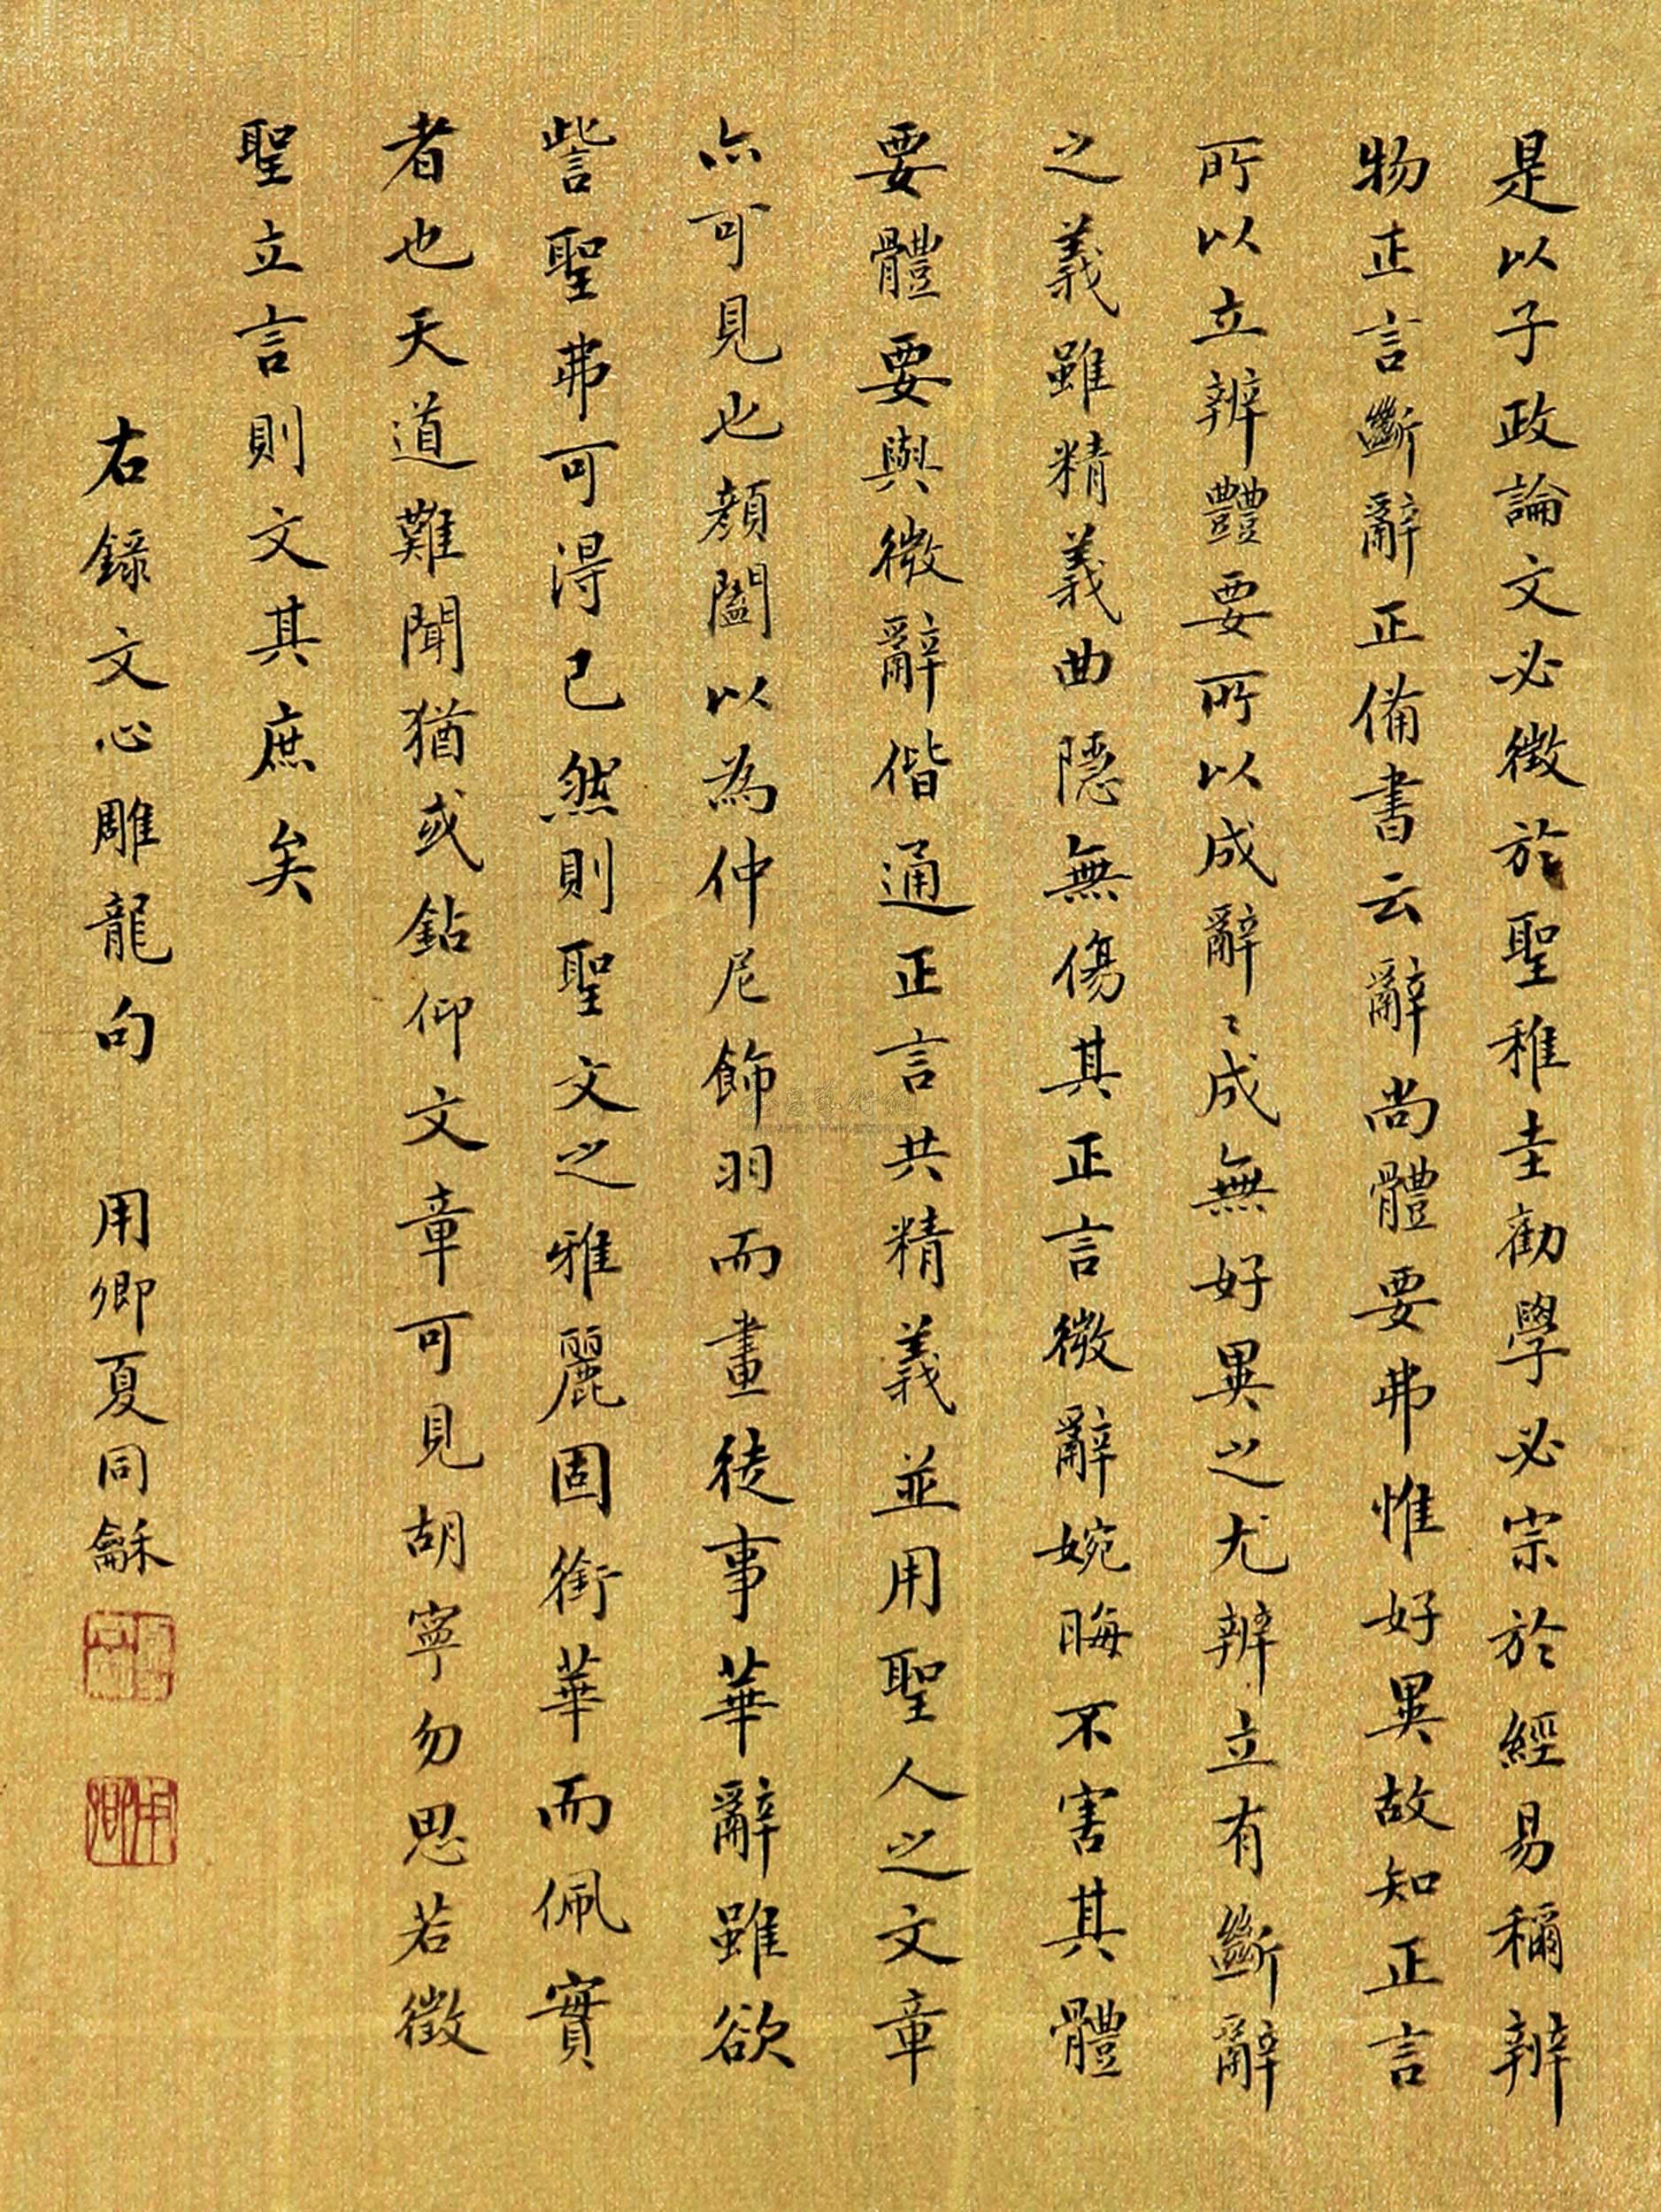 是以子政論文必徵於聖稚圭勸學必宗於經易稱辨
物正言斷辭正備書云辭尚體要弗惟好異故知正言
所以立辨體要所以成辭〻成無好異之尤辨立有斷辭
之義雖精義曲隱無傷其正言微辭婉晦不害其體
要體要與微辭偕通正言共精義並用聖人之文章
亦可見也顏闔以為仲尼飾羽而畫徒事華辭雖欲
訾聖弗可得已然則聖文之雅麗固銜華而佩實
者也天道難聞猶或鉆仰文章可見胡寧勿思若徵
聖立言則文其庶矣
右錄文心雕龍句 用卿夏同龢
用卿